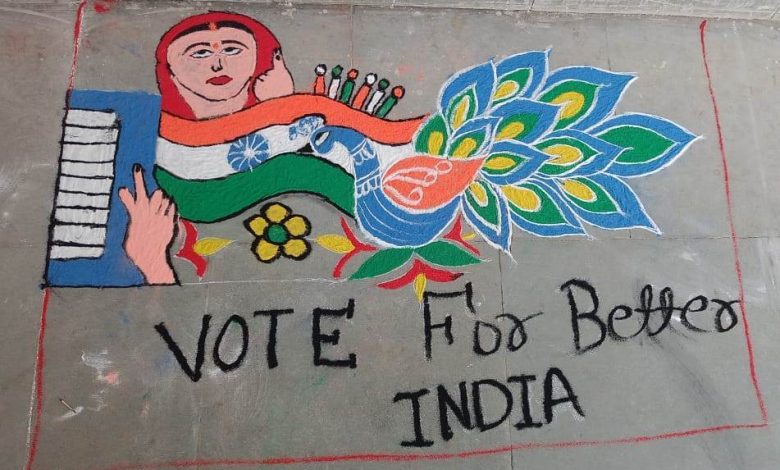 VOTE For Better
INDIA